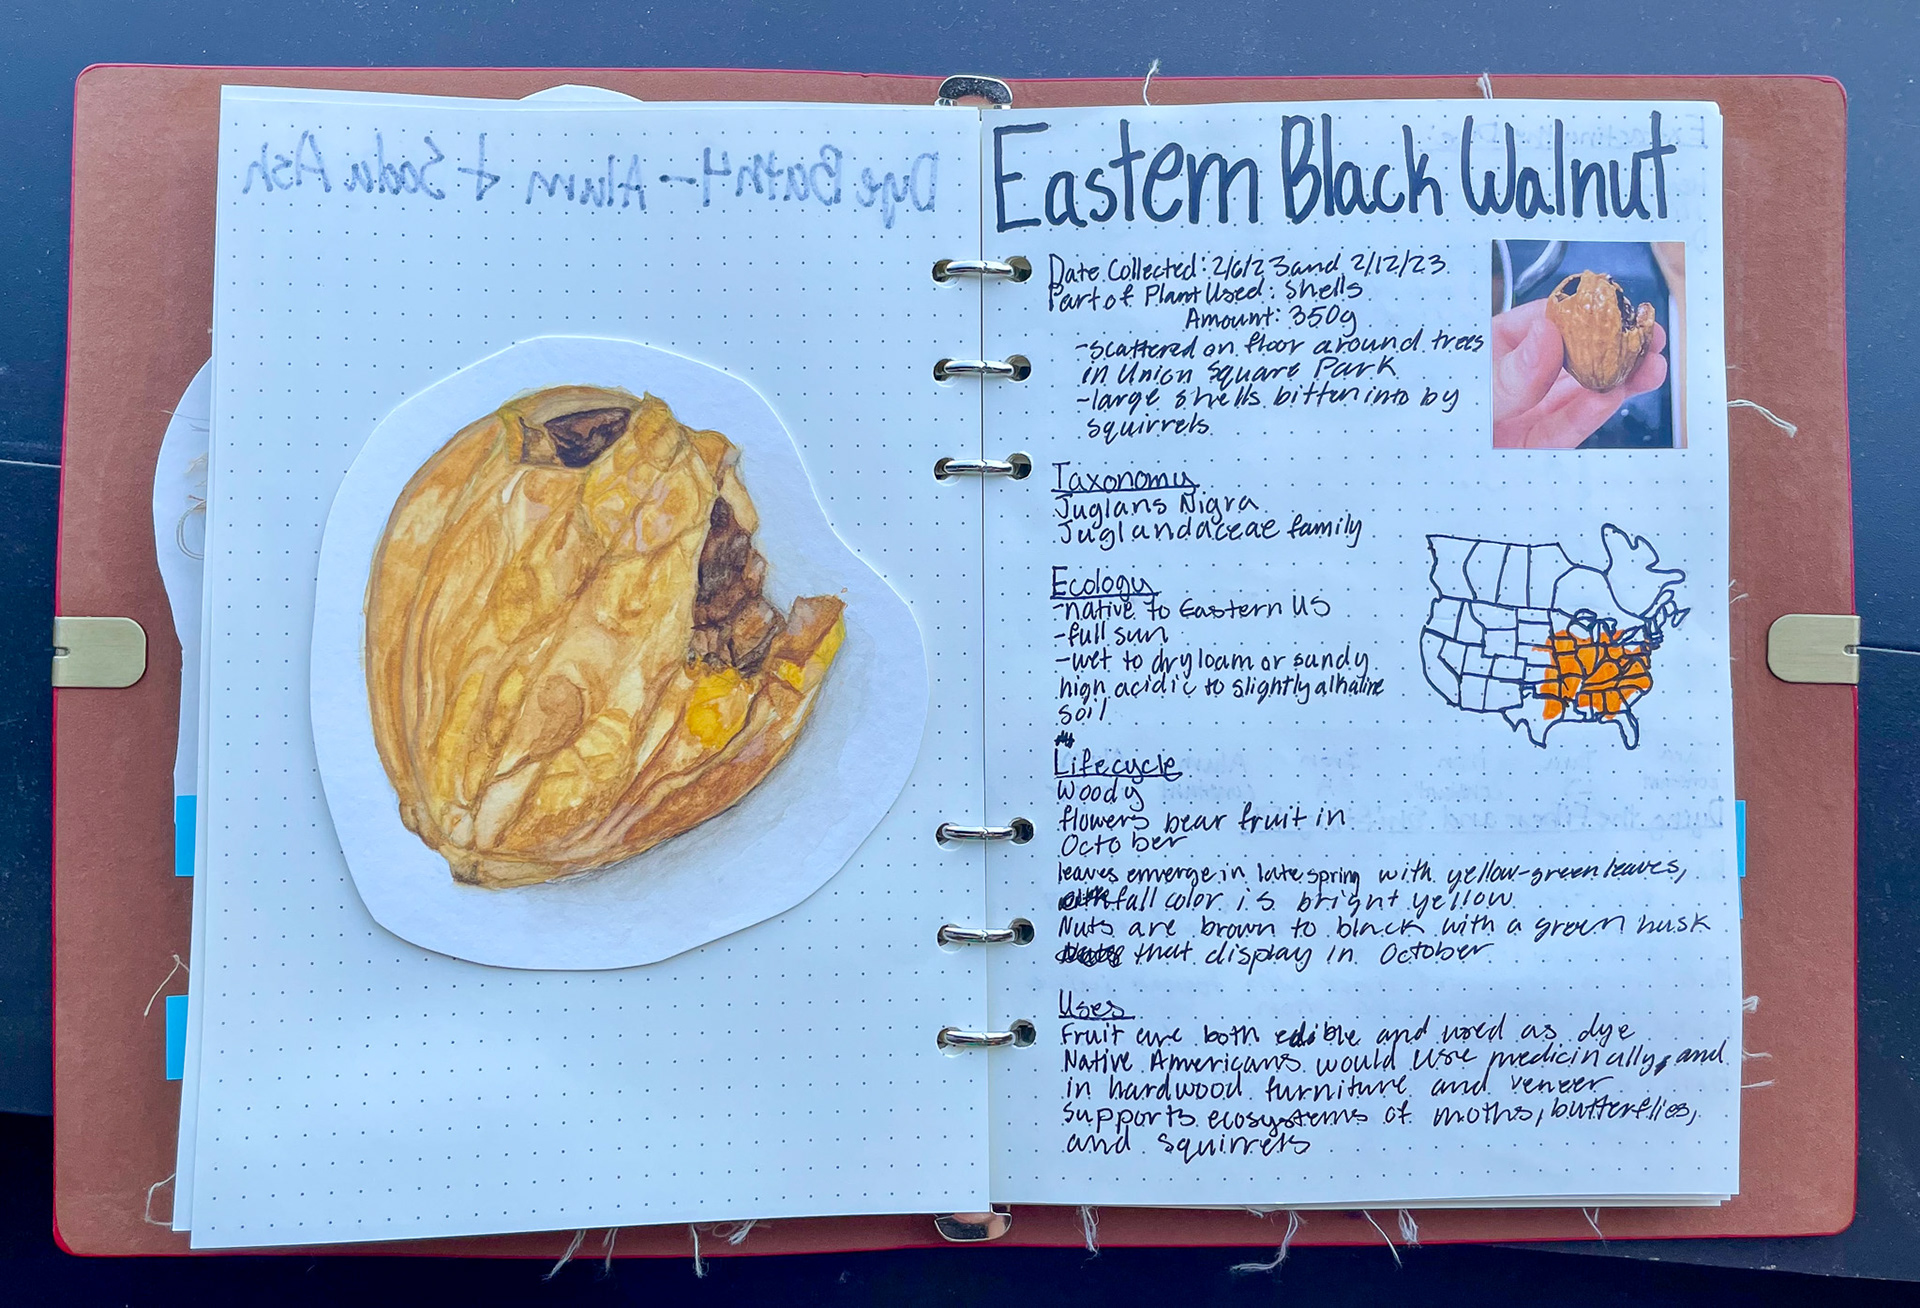 Dye Bath 4 - Alum + Soda Ash
Eastern Black Walnut
Date Collected: 2/6/23 and 2/12/23
Part of Plant Used: Shells
Amount: 350g
-scattered on floor around trees
in Union Square Park
-large shells bitten into by
squirrels
Taxonomy
Juglans Nigra
Juglandaceae family
Ecology
-native to Eastern US
-full sun
-wet to dry loam or sandy
high acidic to slightly alkaline
soil
Lifecycle
Woody
flowers bear fruit in
October
leaves emerge in late spring with yellow-green leaves,
fall color is bright yellow
Nuts are brown to black with a green husk
that display in October
Uses
Fruit are both edible and used as dye
Native Americans would use medicinally, and
in hardwood furniture and veneer
supports ecosystems of moths, butterflies,
and squirrels